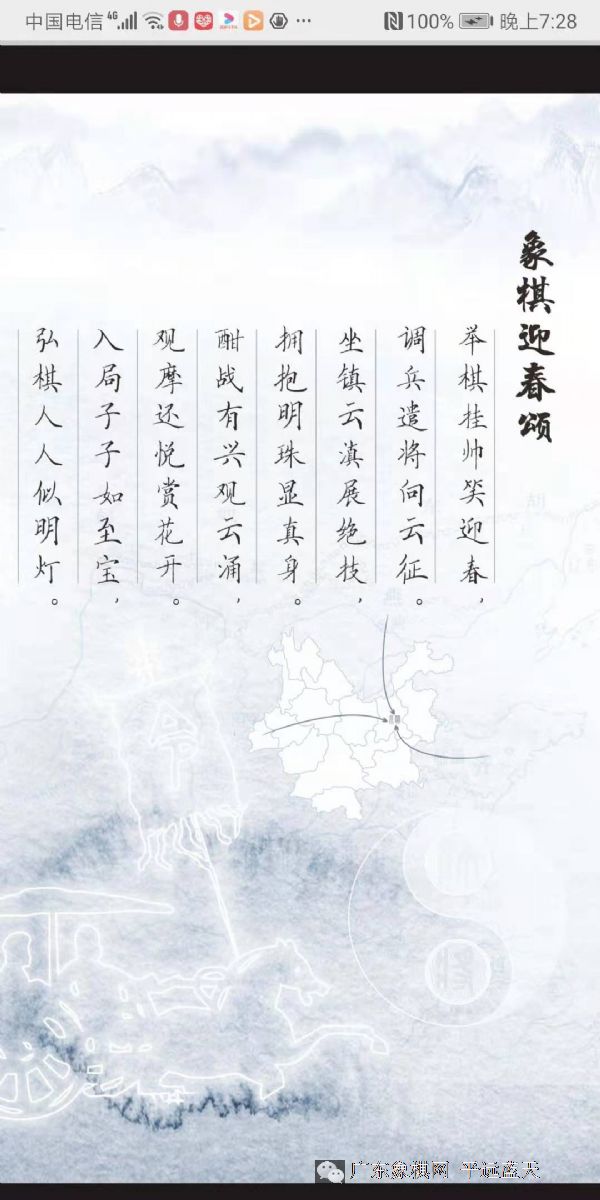 中国电信 4G 100% 晚上7:28
象棋迎春颂
举棋挂帅笑迎春，
调兵遣将向云征。
坐镇云滇展绝技，
拥抱明珠显真身。
酣战有兴观云涌，
观摩还悦赏花开。
入局子子如至宝，
弘棋人人似明灯。
广东象棋网 平远蓝天